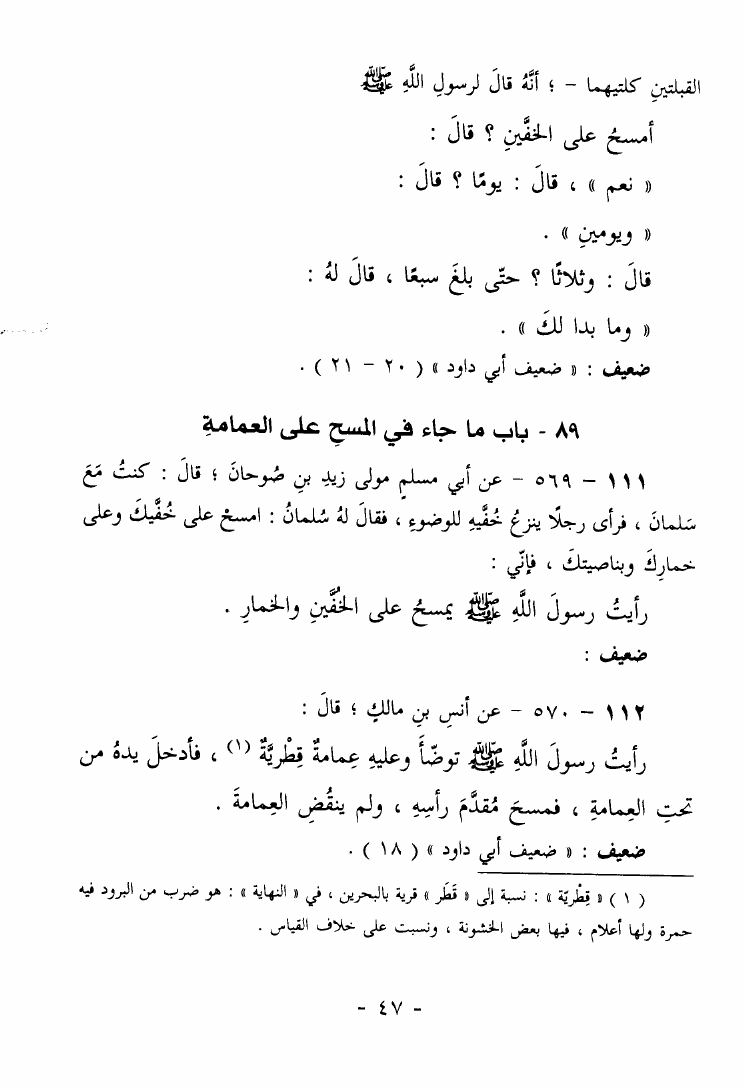 القبلتينِ كلتيهما – ؛ أنَّهُ قالَ لرسولِ اللَّهِ ﷺ
أمسحُ على الخفَّينِ ؟ قالَ :
« نعم » ، قالَ : يومًا ؟ قالَ :
« ويومينِ » .
قالَ : وثلاثًا ؟ حتّى بلغَ سبعًا ، قالَ لهُ :
« وما بدا لكَ » .
ضعيف : « ضعيف أبي داود » ( ٢٠ – ٢١ ) .
٨٩ - باب ما جاء في المسحِ على العمامةِ
١١١ – ٥٦٩ – عن أبي مسلمٍ مولى زيدِ بنِ صُوحانَ ؛ قالَ : كنتُ مَعَ
سَلمانَ ، فرأى رجلًا ينزعُ خُفَّيهِ للوضوءِ ، فقالَ لهُ سُلمانُ : امسحْ على خُفَّيكَ وعلى
خمارِكَ وبناصيتكَ ، فإنّي :
رأيتُ رسولَ اللَّهِ ﷺ يمسحُ على الخُفَّينِ والخمارِ .
ضعيف :
١١٢ – ٥٧٠ – عن أنسِ بنِ مالكٍ ؛ قالَ :
رأيتُ رسولَ اللَّهِ ﷺ توضّأَ وعليهِ عِمامةٌ قِطْريَّةٌ (١) ، فأدخلَ يدهُ من
تحتِ العِمامةِ ، فمسحَ مُقدَّمَ رأسِهِ ، ولم ينقُضِ العِمامةَ .
ضعيف : « ضعيف أبي داود » ( ١٨ ) .
( ١ ) « قِطْريّة » : نسبة إلى « قَطَر » قرية بالبحرين ، في « النهاية » : هو ضرب من البرود فيه
حمرة ولها أعلام ، فيها بعض الخشونة ، ونسبت على خلاف القياس .
- ٤٧ -